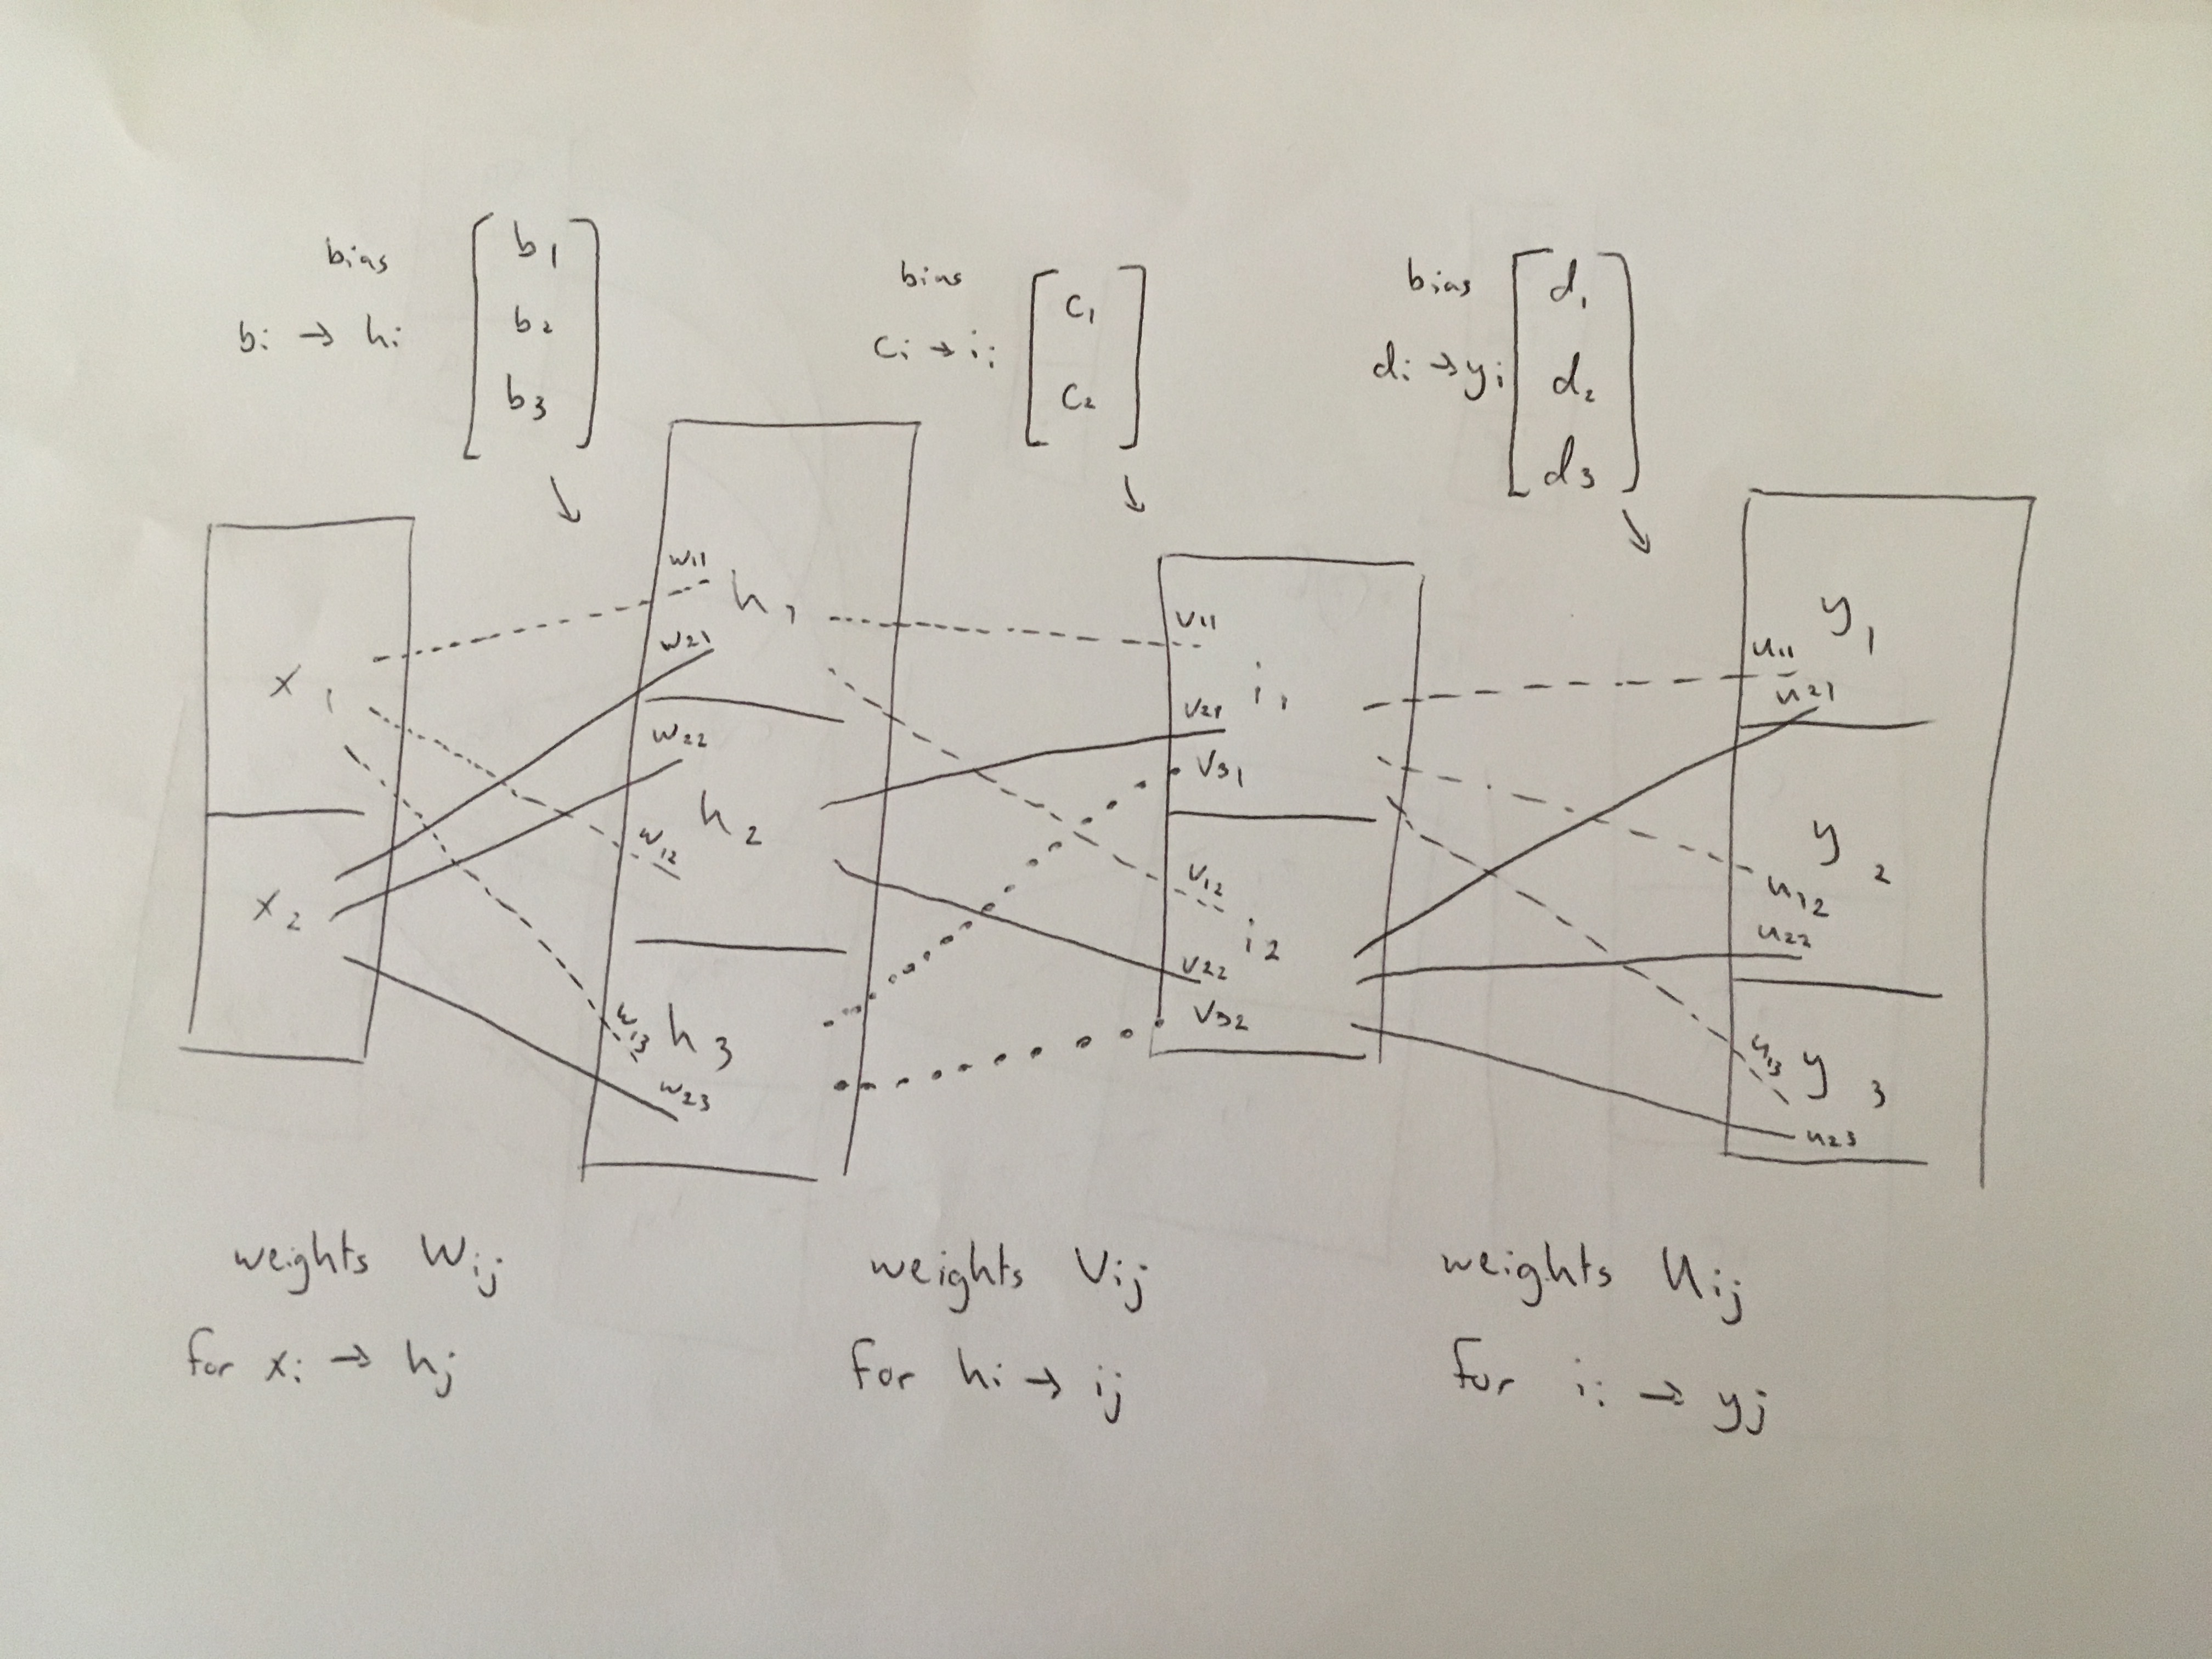 bias
bi → hi
b1
b2
b3
bias
ci → ii
c1
c2
bias
di → yi
d1
d2
d3
x1
x2
w11
h1
w21
w22
h2
w12
w13
h3
w23
v11
i1
v21
v31
v12
i2
v22
v32
y1
u11
u21
y2
u12
u22
u13
y3
u23
weights Wij
for xi → hj
weights Vij
for hi → ij
weights Uij
for ii → yj